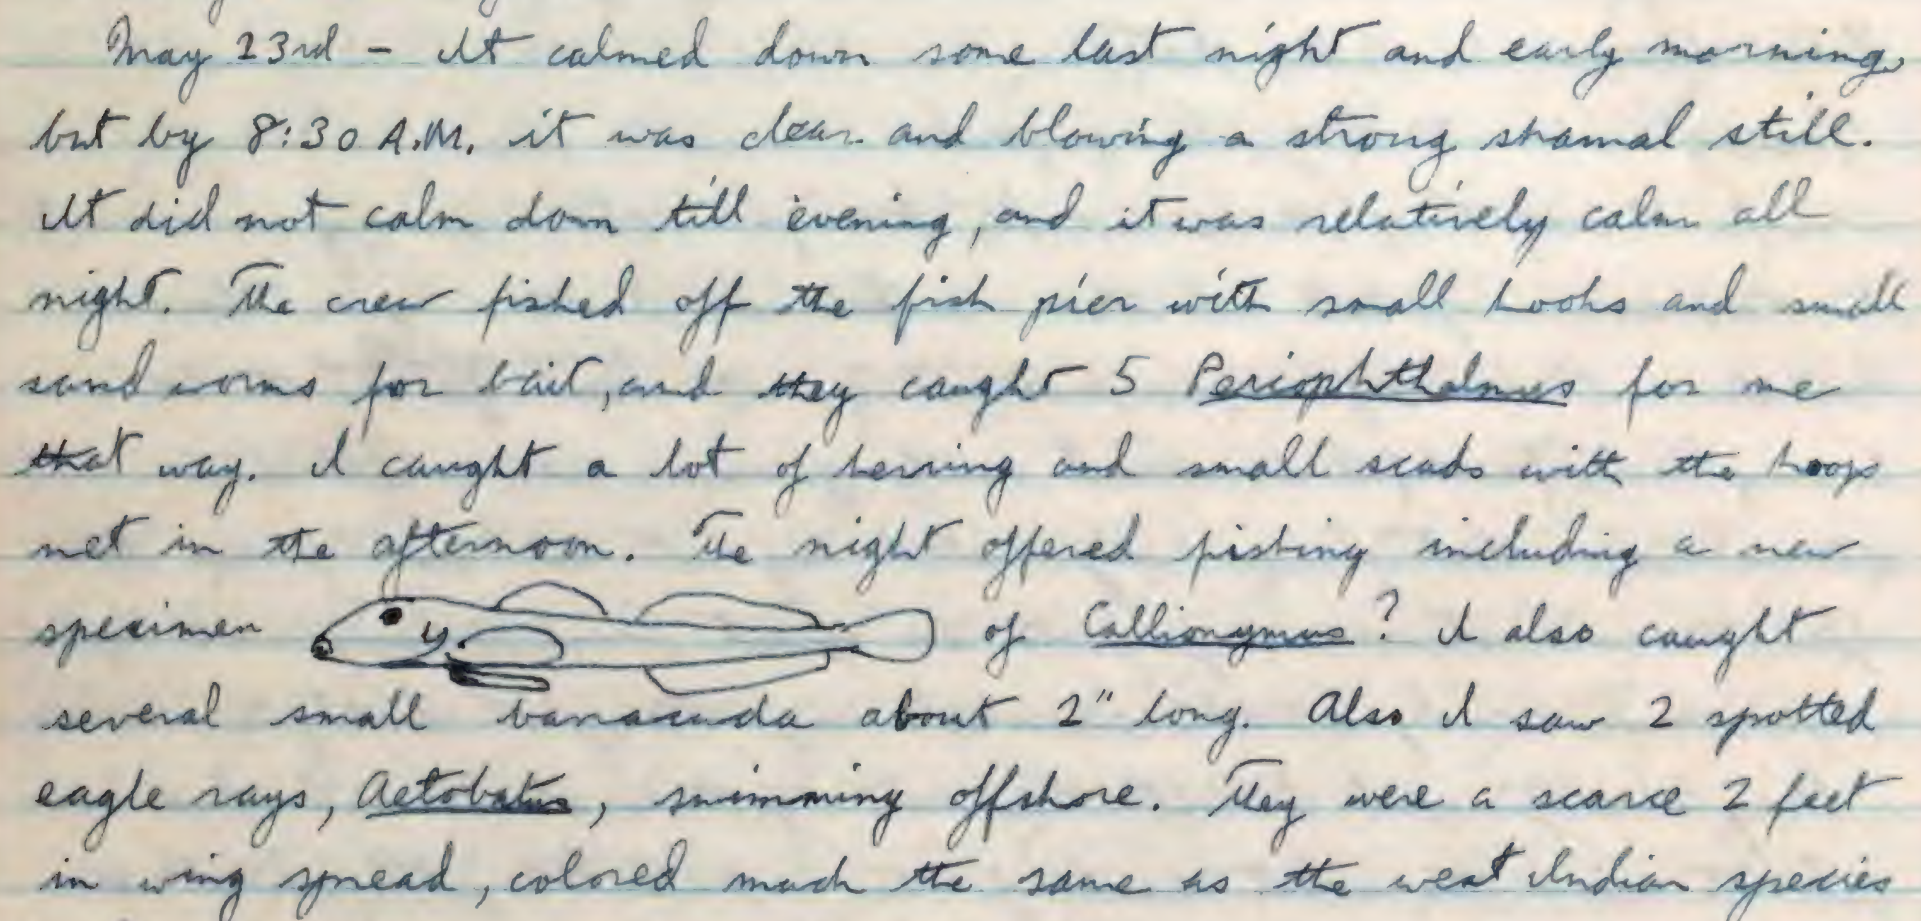 May 23rd - It calmed down some last night and early morning,
but by 8:30 A.M. it was clear and blowing a strong shamal still.
It did not calm down till evening, and it was relatively calm all
night. The crew fished off the fish pier with small hooks and small
sand worms for bait, and they caught 5 Periophthalmus for me
that way. I caught a lot of herring and small scads with the hoop
net in the afternoon. The night offered fishing including a new
specimen of Callionymus? I also caught
several small barracuda about 2" long. Also I saw 2 spotted
eagle rays, Aetobatus, swimming offshore. They were a scarce 2 feet
in wing spread, colored much the same as the west Indian species